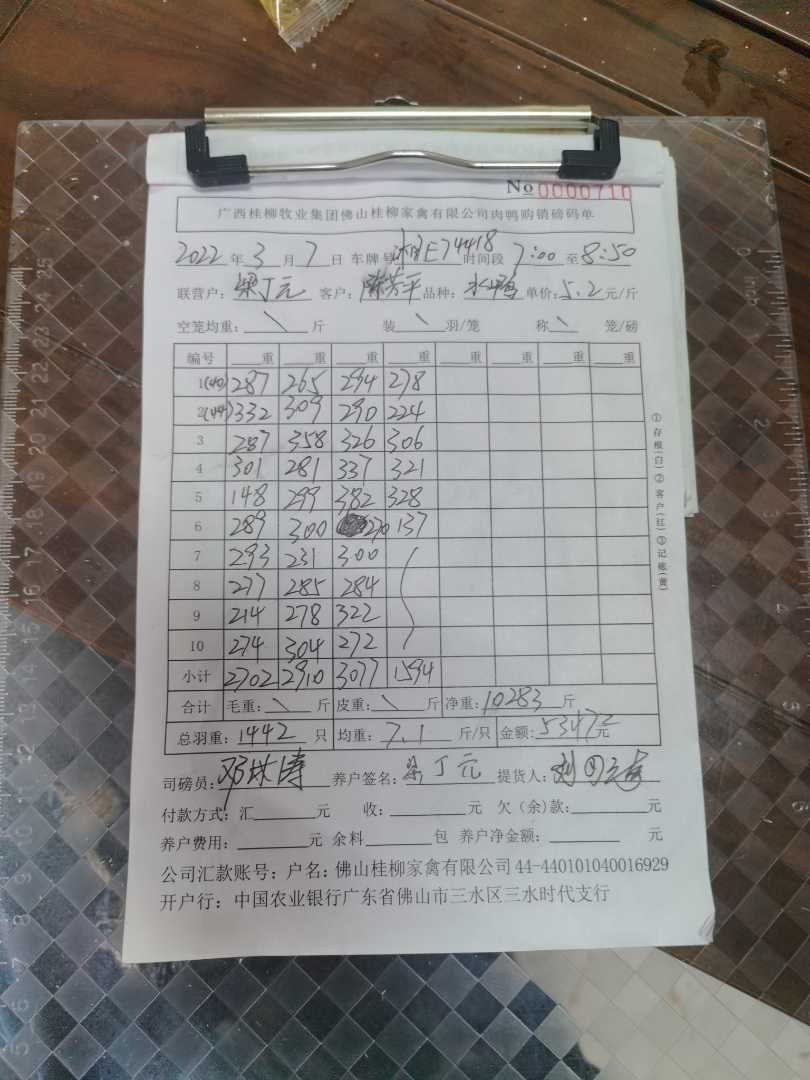 No 0000710
广西桂柳牧业集团佛山桂柳家禽有限公司肉鸭购销磅码单
2022 年 3 月 7 日 车牌号 E74418 时间段 7:00 至 8:50
联营户: 梁丁元 客户: 陈芳平 品种: 水鸭 单价: 5.2 元/斤
空笼均重: \ 斤 装 \ 羽/笼 称 \ 笼/磅
编号 重 重 重 重 重 重 重 重
1(40) 287 265 294 278
2(44) 332 309 290 224
3 287 358 326 306
4 301 281 337 321
5 148 299 382 328
6 289 300 270 137
7 293 231 300
8 277 285 284
9 214 278 322
10 274 304 272
小计 2702 2910 3077 1594
合计 毛重: \ 斤 皮重: \ 斤 净重: 10283 斤
总羽重: 1442 只 均重: 7.1 斤/只 金额: 53472 元
司磅员: 邓 涛 养户签名: 梁丁元 提货人:
付款方式: 汇 元 收: 元 欠(余)款: 元
养户费用: 元 余料 包 养户净金额: 元
公司汇款账号: 户名: 佛山桂柳家禽有限公司 44-440101040016929
开户行: 中国农业银行广东省佛山市三水区三水时代支行
①存根(白)②客户(红)③记账(黄)